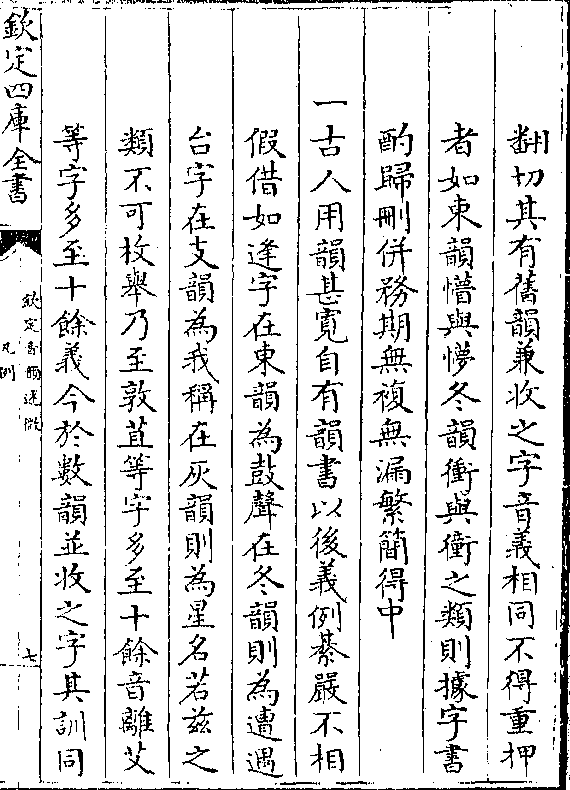 翻切其有舊韻兼收之字音義相同不得重押
者如東韻懵與懜冬韻衝與衝之類則據字書
酌歸刪併務期無複無漏繁簡得中
一古人用韻甚寛自有韻書以後義例綦嚴不相
假借如逢字在東韻為鼓聲在冬韻則為遭遇
台字在支韻為我稱在灰韻則為星名若兹之
類不可枚舉乃至敦苴等字多至十餘音離艾
等字多至十餘義今於數韻並收之字其訓同
欽定四庫全書
欽定音韻述微
凡例
七